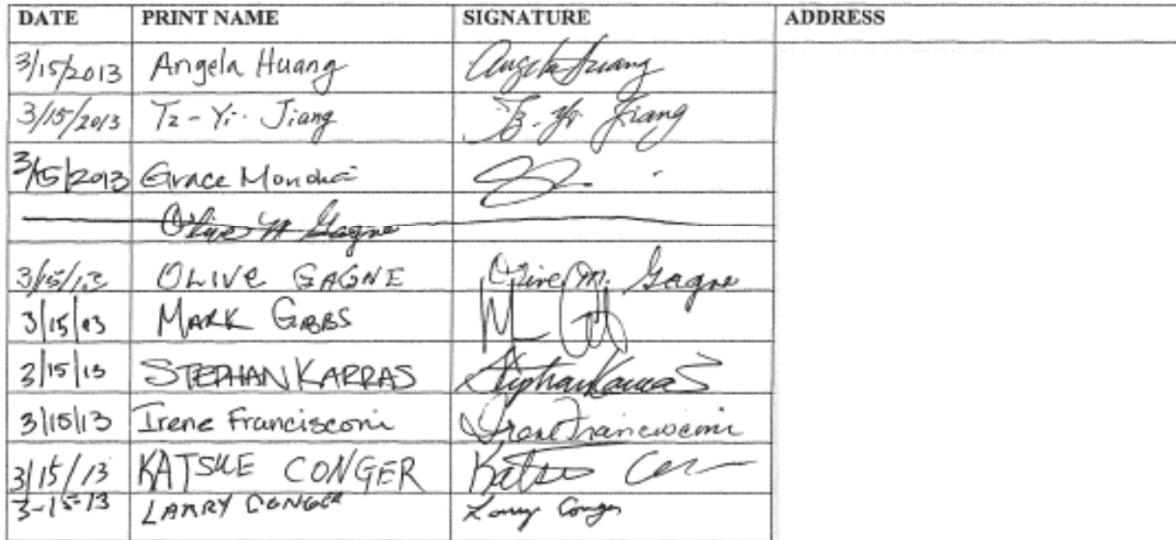 DATE PRINT NAME SIGNATURE ADDRESS
3/15/2013 Angela Huang Angela Huang
3/15/2013 Tz-Yi Jiang Tz-Yi Jiang
3/15/2013 Grace
Olive M Gagne
3/15/13 OLIVE GAGNE Olive M. Gagne
3/15/13 MARK GIBBS
3/15/13 STEPHAN KARRAS Stephan Karras
3/15/13 Irene Francisconi Irene Francisconi
3/15/13 KATSUE CONGER Katsue
3-15-13 LARRY CONGER Larry Conger